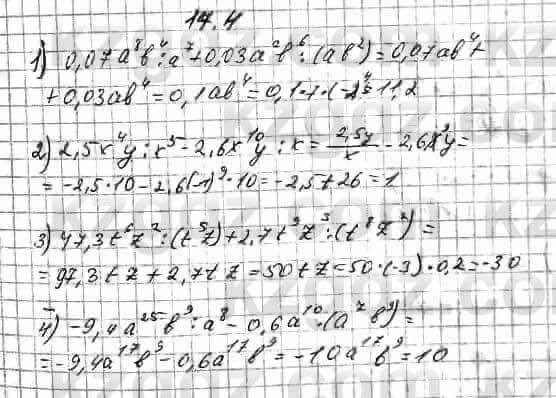 14.4
1) 0,07a⁸b⁴:a⁷+0,03a²b⁶:(ab²)=0,07ab⁴+
+0,03ab⁴=0,1ab⁴=0,1·7·(-2)⁴=11,2
2) 2,5x⁴y:x⁵-2,6x¹⁰y:x=2,5y/x-2,6x⁹y=
=-2,5·10-2,6(-1)⁹·10=-2,5+26=1
3) 47,3t⁶z²:(t⁵z)+2,7t⁹z³:(t⁸z²)=
=97,3tz+2,7tz=50tz=50·(-3)·0,2=-30
4) -9,4a²⁵b⁹:a⁸-0,6a¹⁰:(a⁷b⁹)=
=-9,4a¹⁷b⁹-0,6a¹⁷b⁹=-10a¹⁷b⁹=10